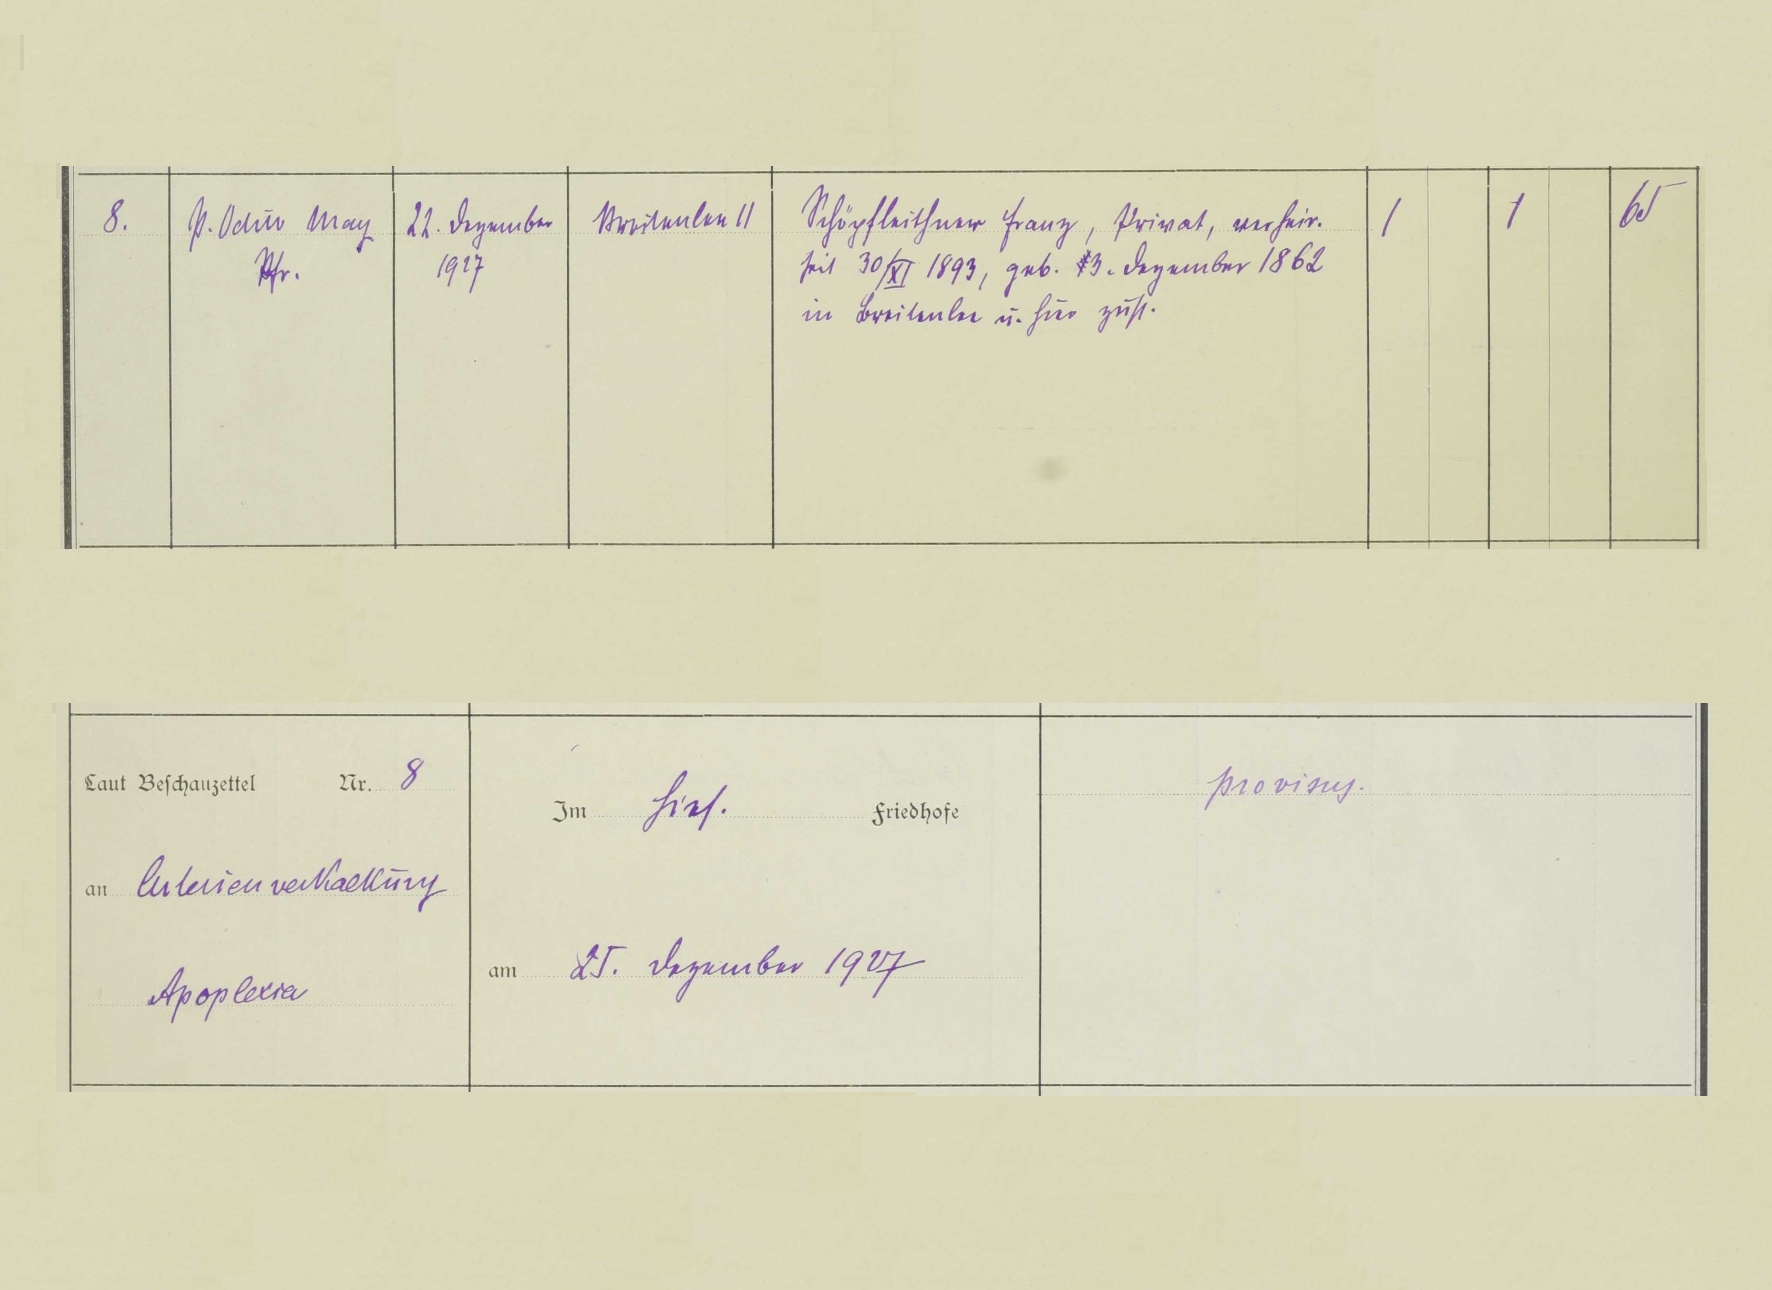 8.
P. Odilo May
Pfr.
22. Dezember
1927
Breitenlee 11
Schöpfleithner Franz, Privat, verheir.
seit 30/XI 1893, geb. 3. Dezember 1862
in Breitenlee u. hier zust.
1
1
65
Laut Beschauzettel Nr. 8
an Arterienverkalkung
Apoplexia
Im hies. Friedhofe
am 25. Dezember 1927
provisus.